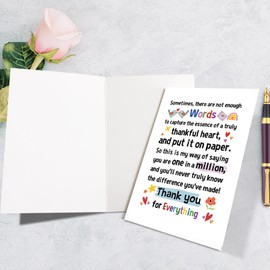 Sometimes, there are not enough
Words
to capture the essence of a truly
thankful heart,
and put it on paper.
So this is my way of saying
you are one in a million,
and you'll never truly know
the difference you've made!
Thank you
for Everything